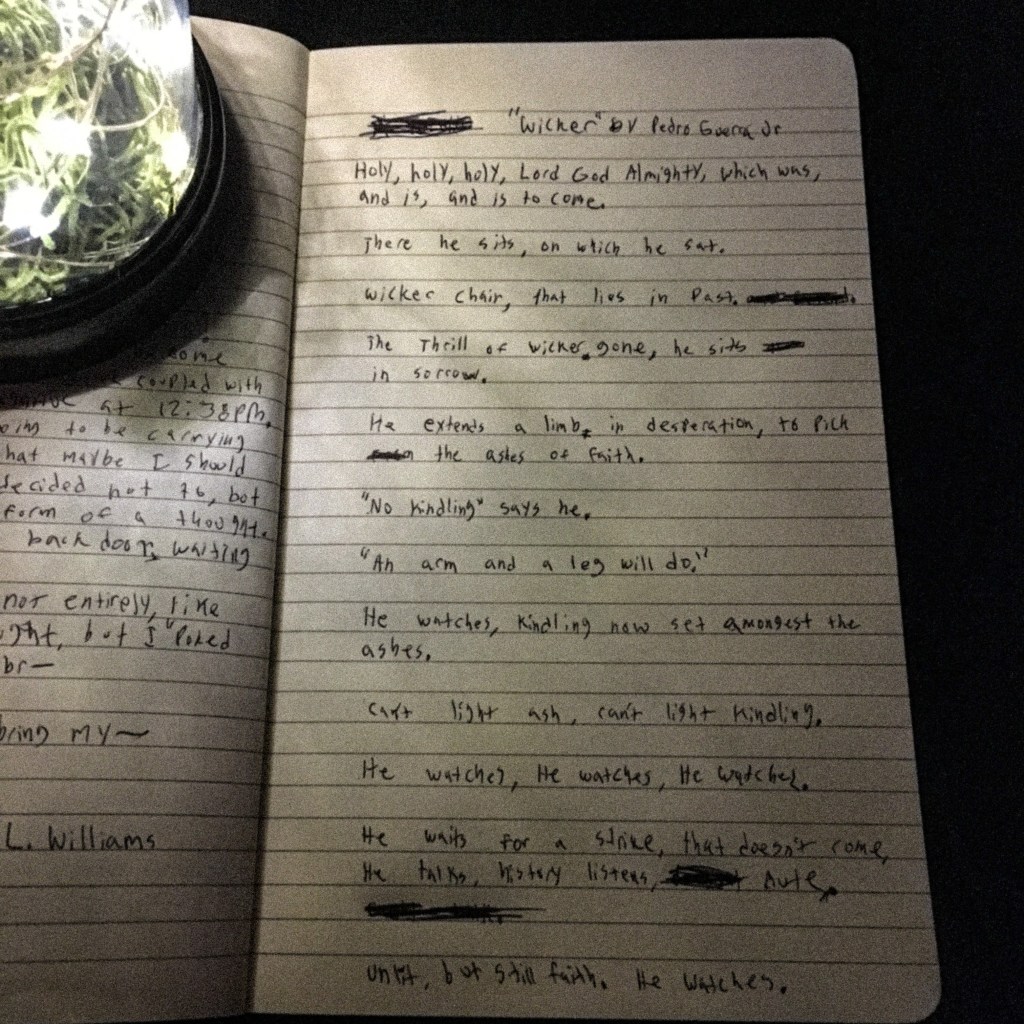 come
coupled with
at 12:38pm,
to be carrying
hat maybe I should
decided not to, but
form of a thought.
back door, waiting
not entirely, like
ght, but I "Poked
br—
bring my~
L. Williams
"Wicker" by Pedro Guerra Jr
Holy, holy, holy, Lord God Almighty, which was,
and is, and is to come.
There he sits, on which he sat.
Wicker chair, that lies in Past.
The Thrill of wicker gone, he sits
in sorrow.
He extends a limb, in desperation, to pick
the ashes of faith.
"No kindling" says he.
"An arm and a leg will do."
He watches, kindling now set amongest the
ashes.
Can't light ash, can't light kindling.
He watches, He watches, He watches.
He waits for a strike, that doesn't come,
He talks, history listens,
Unlit, but still faith. He watches.